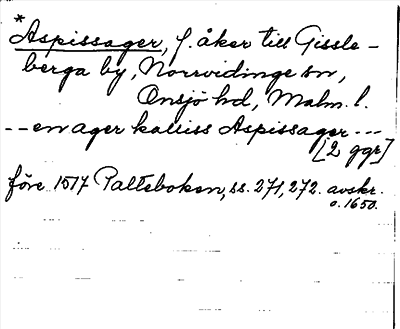 *
Aspissager, f. åker till Gissle-
berga by, Norrvidinge sn,
Onsjö hd, Malm. l.
-- en ager kalliss Aspissager ---
[2 ggr]
före 1517 Palteboken, ss. 271, 272. avskr.
o. 1650.